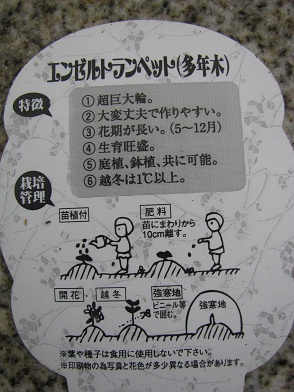 エンゼルトランペット(多年木)
特徴
①超巨大輪。
②大変丈夫で作りやすい。
③花期が長い。(5〜12月)
④生育旺盛。
⑤庭植、鉢植、共に可能。
⑥越冬は1℃以上。
栽培
管理
苗植付
肥料
苗にまわりから
10cm離す。
開花
越冬
強寒地
ビニール等
で囲む。
強寒地
※葉や種子は食用に使用しないで下さい。
※印刷物の為写真と花色が多少異なる場合があります。